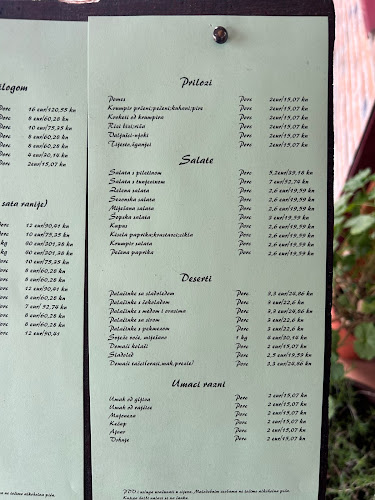 ilogom
Porc 16 eur/120,55 kn
Porc 8 eur/60,28 kn
Porc 10 eur/75,35 kn
Porc 8 eur/60,28 kn
Porc 8 eur/60,28 kn
Porc 4 eur/30,14 kn
Porc 2eur/15,07 kn
sata ranije)
Porc 12 eur/90,41 kn
Porc 10 eur/75,35 kn
kg 60 eur/301,38 kn
kg 60 eur/301,38 kn
Porc 10 eur/75,35 kn
Porc 8 eur/60,28 kn
Porc 8 eur/60,28 kn
Porc 12 eur/90,41 kn
Porc 8 eur/60,28 kn
Porc 7 eur/52,74 kn
Porc 8 eur/60,28 kn
Porc 8 eur/60,28 kn
Porc 12 eur/90,41
Prilozi
Pomes Porc 2eur/15,07 kn
Krumpir prženi;pečeni;kuhani;pire Porc 2eur/15,07 kn
Kroketi od krumpira Porc 2eur/15,07 kn
Rizi bizi;riža Porc 2eur/15,07 kn
Valjušci-njoki Porc 2eur/15,07 kn
Tijesto,žganjci Porc 2eur/15,07 kn
Salate
Salata s piletinom Porc 5,2eur/39,18 kn
Salata s tunjevinom Porc 7 eur/52,74 kn
Zelena salata Porc 2,6 eur/19,59 kn
Sezonska salata Porc 2,6 eur/19,59 kn
Miješana salata Porc 2,6 eur/19,59 kn
Šopska salata Porc 3 eur/19,59 kn
Kupus Porc 2,6 eur/19,59 kn
Kisela paprika;krastavci;cikla Porc 2,6 eur/19,59 kn
Krumpir salata Porc 2,6 eur/19,59 kn
Pečena paprika Porc 2,6 eur/19,59 kn
Deserti
Palačinke sa sladoledom Porc 3,3 eur/24,86 kn
Palačinke s čokoladom Porc 3 eur/22,6 kn
Palačinke s medom i orasima Porc 3,3 eur/24,86 kn
Palačinke sa sirom Porc 3 eur/22,6 kn
Palačinke s pekmezom Porc 3 eur/22,6 kn
Svježe voće, miješano 1 kg 4 eur/30,14 kn
Domaći kolači Porc 2 eur/15,07 kn
Sladoled Porc 2,5 eur/19,59 kn
Domaći rašireni,mak,presie? Porc 3,3 eur/24,86 kn
Umaci razni
Umak od gljiva Porc 2 eur/15,07 kn
Umak od rajčice Porc 2 eur/15,07 kn
Majoneza Porc 2 eur/15,07 kn
Kečap Porc 2 eur/15,07 kn
Ajvar Porc 2 eur/15,07 kn
Vrhnje Porc 2 eur/15,07 kn
PDV i usluga uračunati u cijenu. Maloljetnim osobama ne točimo alkoholna pića.